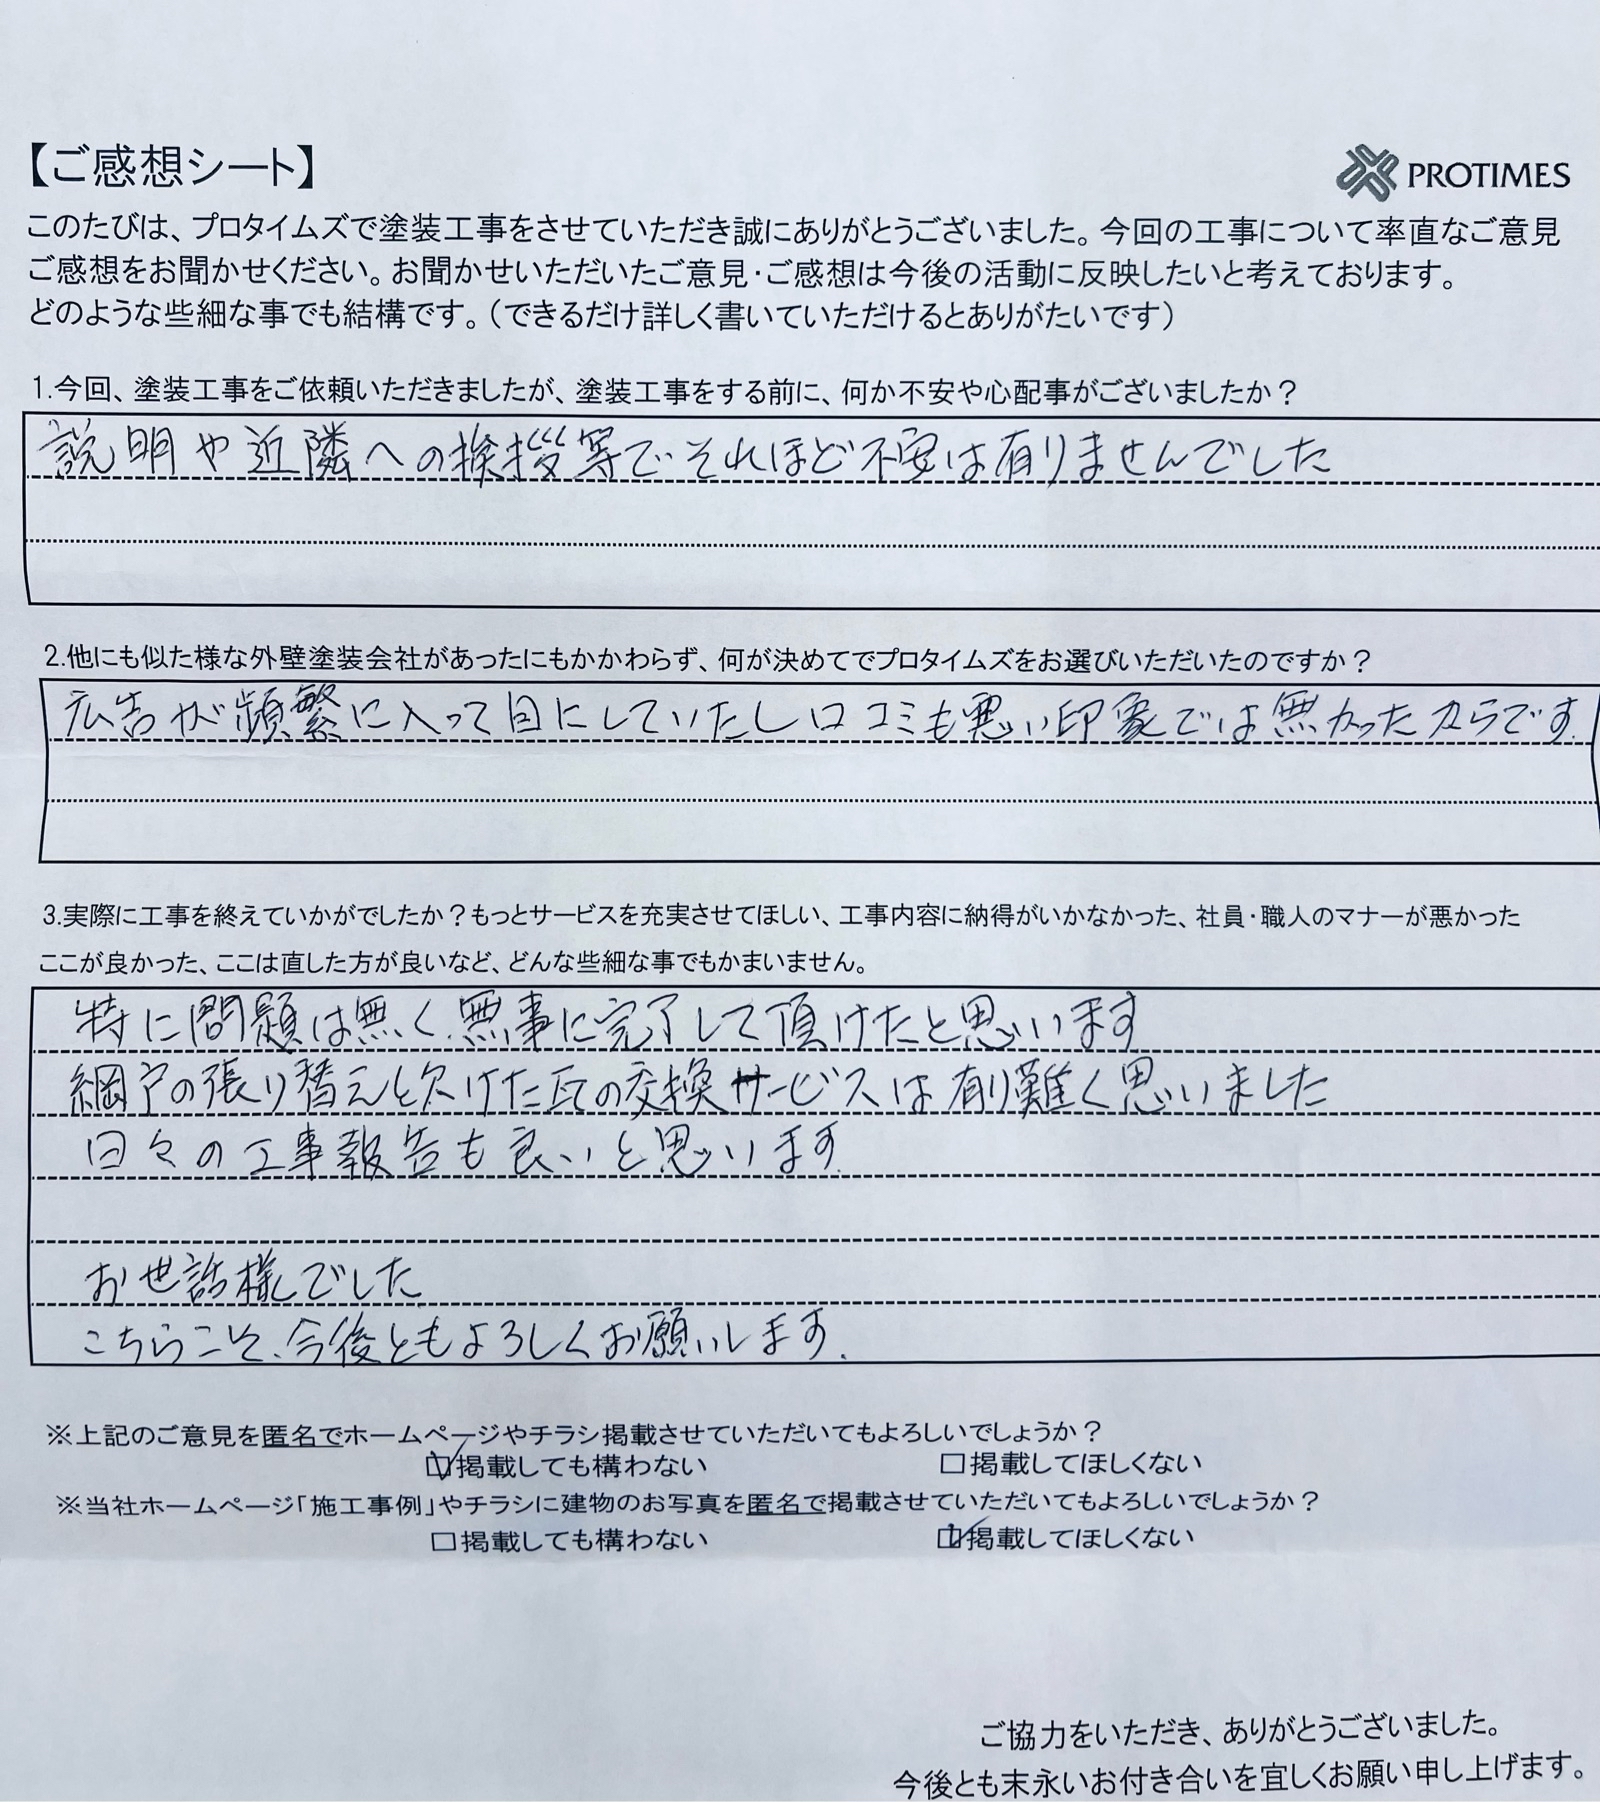 【ご感想シート】
PROTIMES
このたびは、プロタイムズで塗装工事をさせていただき誠にありがとうございました。今回の工事について率直なご意見
ご感想をお聞かせください。お聞かせいただいたご意見・ご感想は今後の活動に反映したいと考えております。
どのような些細な事でも結構です。（できるだけ詳しく書いていただけるとありがたいです）
1.今回、塗装工事をご依頼いただきましたが、塗装工事をする前に、何か不安や心配事がございましたか？
説明や近隣への挨拶等でそれほど不安は有りませんでした
2.他にも似た様な外壁塗装会社があったにもかかわらず、何が決めてでプロタイムズをお選びいただいたのですか？
広告が頻繁に入って目にしていたし口コミも悪い印象では無かったからです.
3.実際に工事を終えていかがでしたか？もっとサービスを充実させてほしい、工事内容に納得がいかなかった、社員・職人のマナーが悪かった
ここが良かった、ここは直した方が良いなど、どんな些細な事でもかまいません。
特に問題は無く、無事に完了して頂けたと思います
網戸の張り替えと欠けた瓦の交換サービスは有り難く思いました
日々の工事報告も良いと思います.
お世話様でした
こちらこそ、今後ともよろしくお願いします.
※上記のご意見を匿名でホームページやチラシ掲載させていただいてもよろしいでしょうか？
☑掲載しても構わない □掲載してほしくない
※当社ホームページ「施工事例」やチラシに建物のお写真を匿名で掲載させていただいてもよろしいでしょうか？
□掲載しても構わない ☑掲載してほしくない
ご協力をいただき、ありがとうございました。
今後とも末永いお付き合いを宜しくお願い申し上げます。